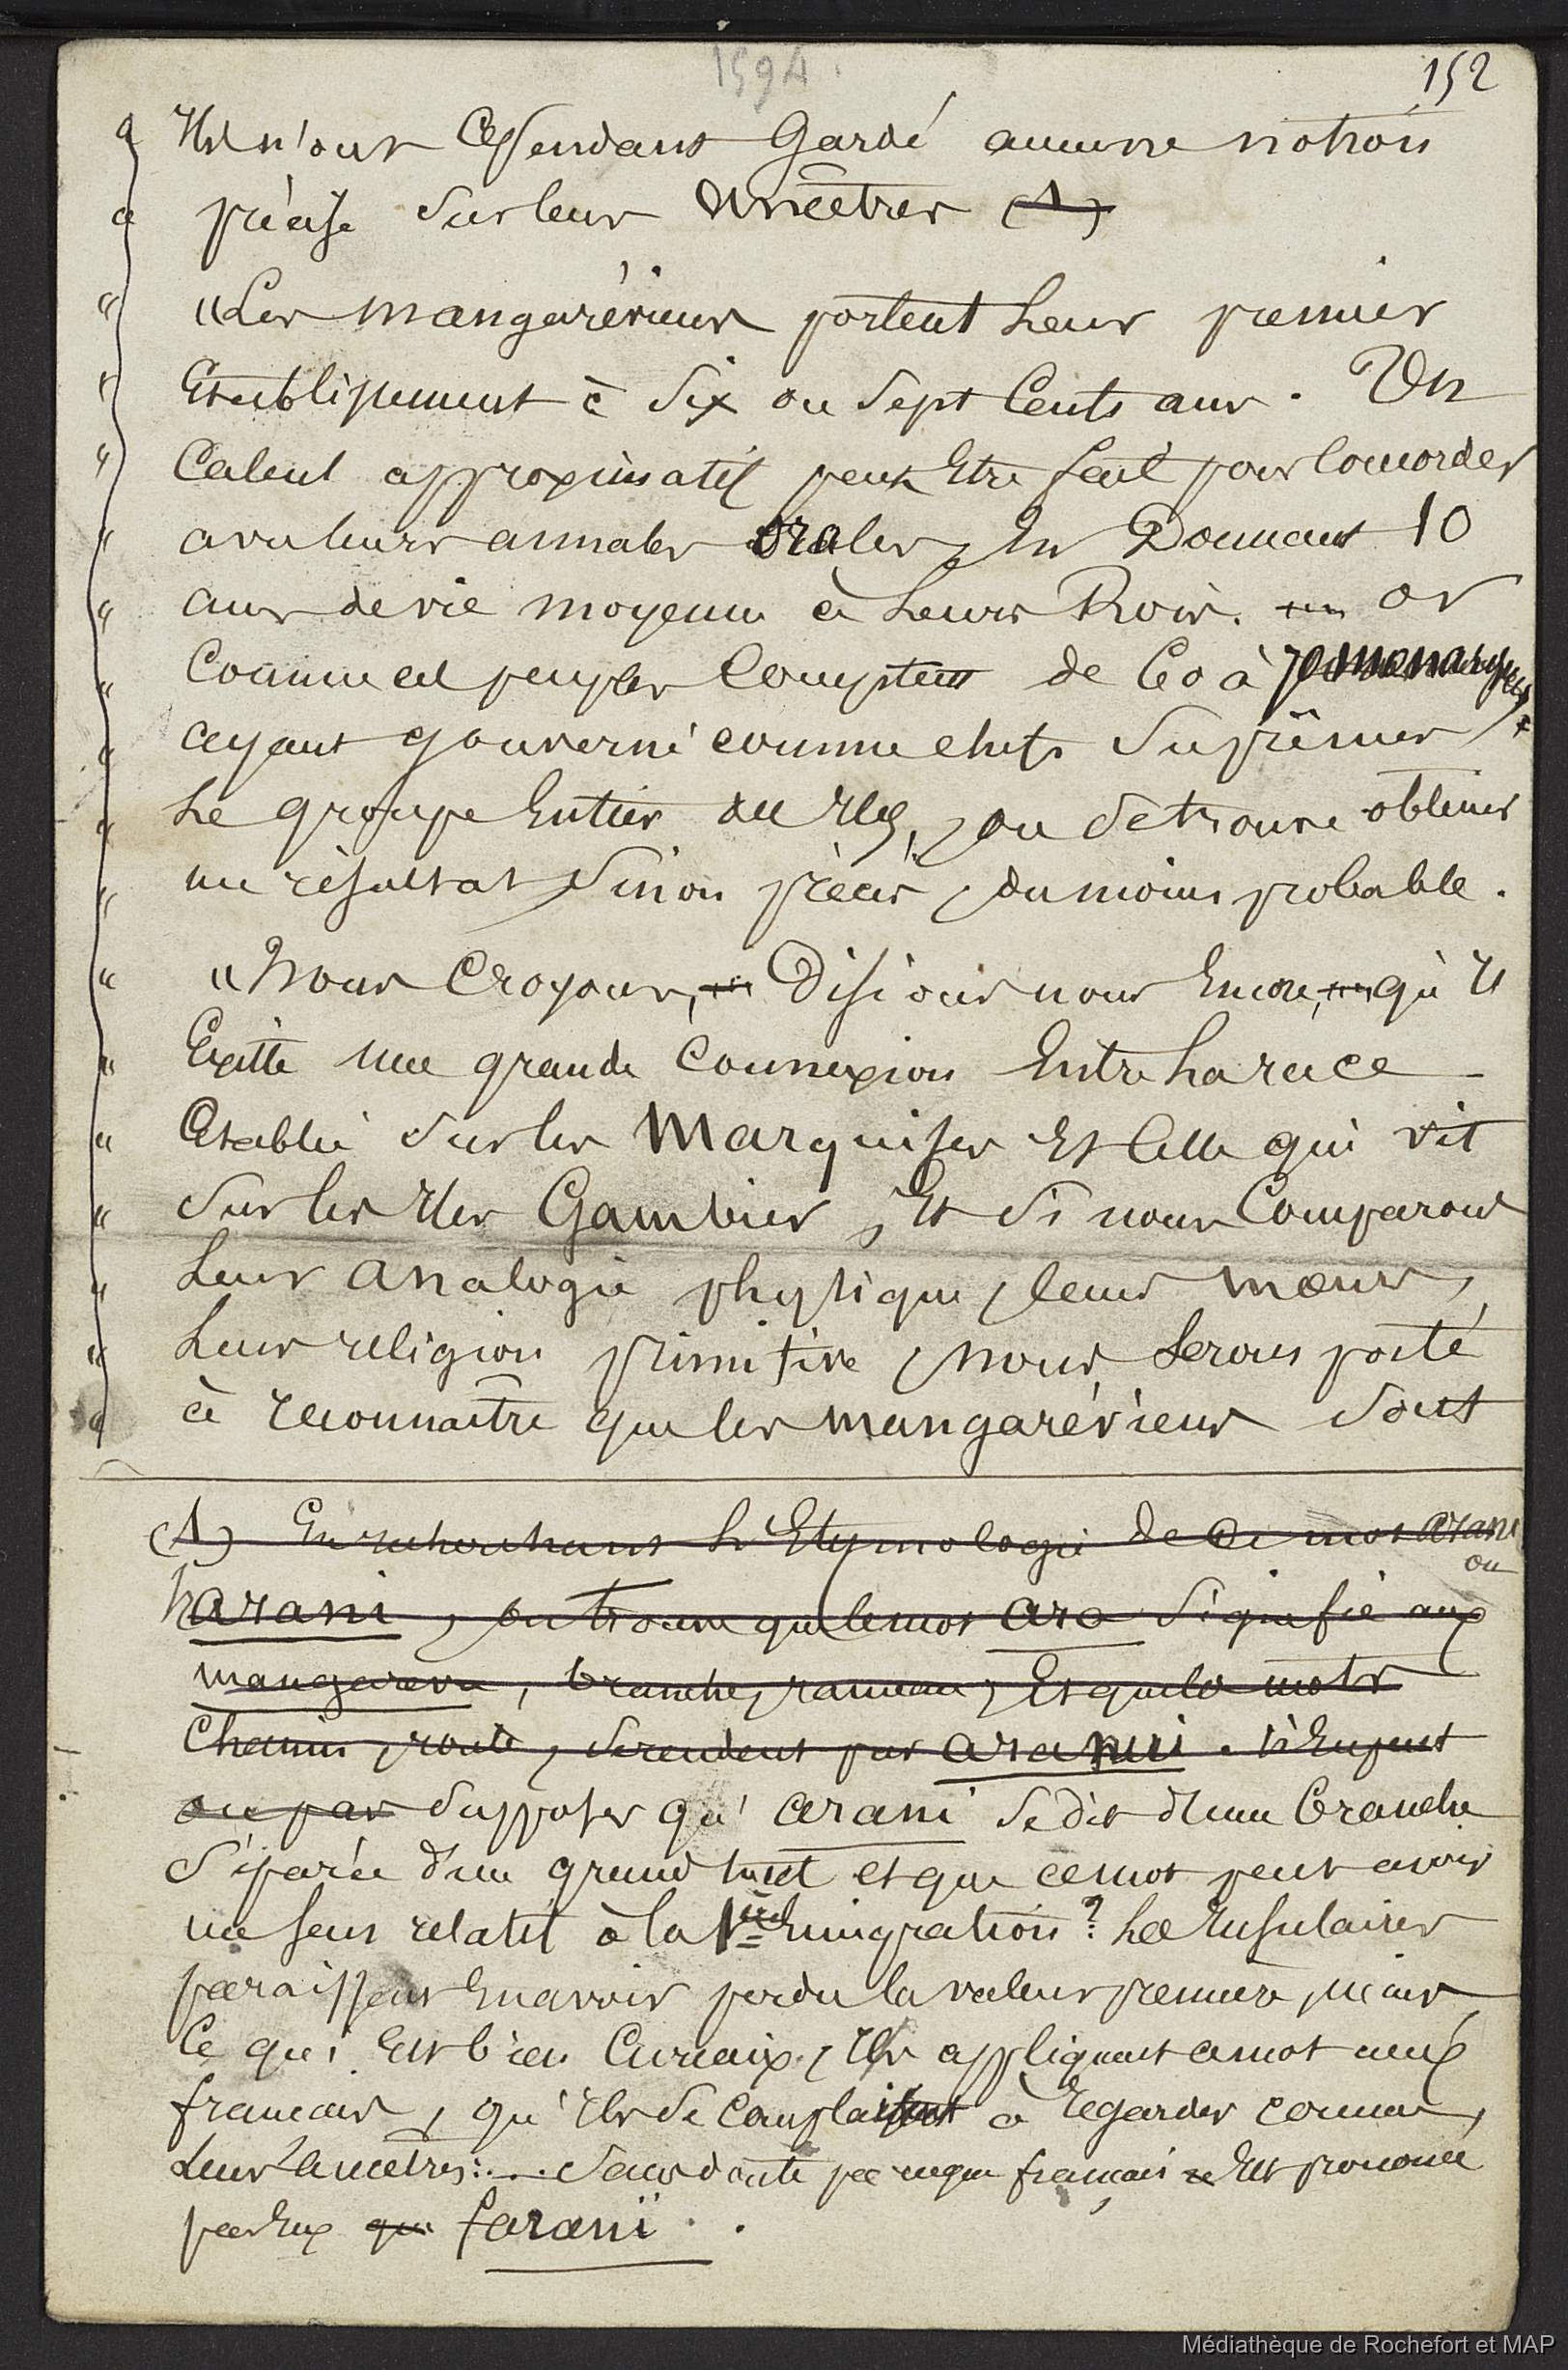 159A.
152
" Ils n'ont Cependant Gardé aucune notion
" précise sur leur Ancêtres (1)
" "Les mangaréviens portent leur premier
" Etablissement à six ou sept Cents ans. Un
" Calcul approximatif peut Etre fait pour Concorder
" avec leurs annales orales, En Donnant 10
" ans de vie moyenne à leurs Rois. Or
" Comme ces peuples Comptent de 60 à 70 monarques
" ayant gouverné comme chefs suprêmes
" le groupe Entier des Iles, on se trouve obtenir
" un résultat sinon précis, du moins probable.
" "Nous Croyons, Disions nous Encore, qu'il
" Existe une grande Connexion Entre la race
" Etablie sur les Marquises Et Celle qui vit
" sur les Iles Gambier, Et si nous Comparons
" leur analogie physique, leurs mœurs,
" leur religion primitive, nous serons porté
" à reconnaître que les mangaréviens sont
(1) En recherchant l'Etymologie de Ce mot arani
ou
harani, on trouve que le mot ara signifie aux
mangareva, branche, rameau, Et que les mots
Chemin, route, se rendent par aranui. N'En peut
on pas supposer qu'arani se dit d'une Branche
séparée d'un grand tout et que ce mot peut avoir
un sens relatif à la 1ère Emigration? Les Insulaires
paraissent En avoir perdu la valeur première, mais
Ce qui Est bien Curieux, Ils appliquent ce mot aux
francais, qu'Ils se complaisent à regarder comme
leurs ancetres:.... sans doute parceque francais Est prononcé
par Eux faranii..
Médiathèque de Rochefort et MAP